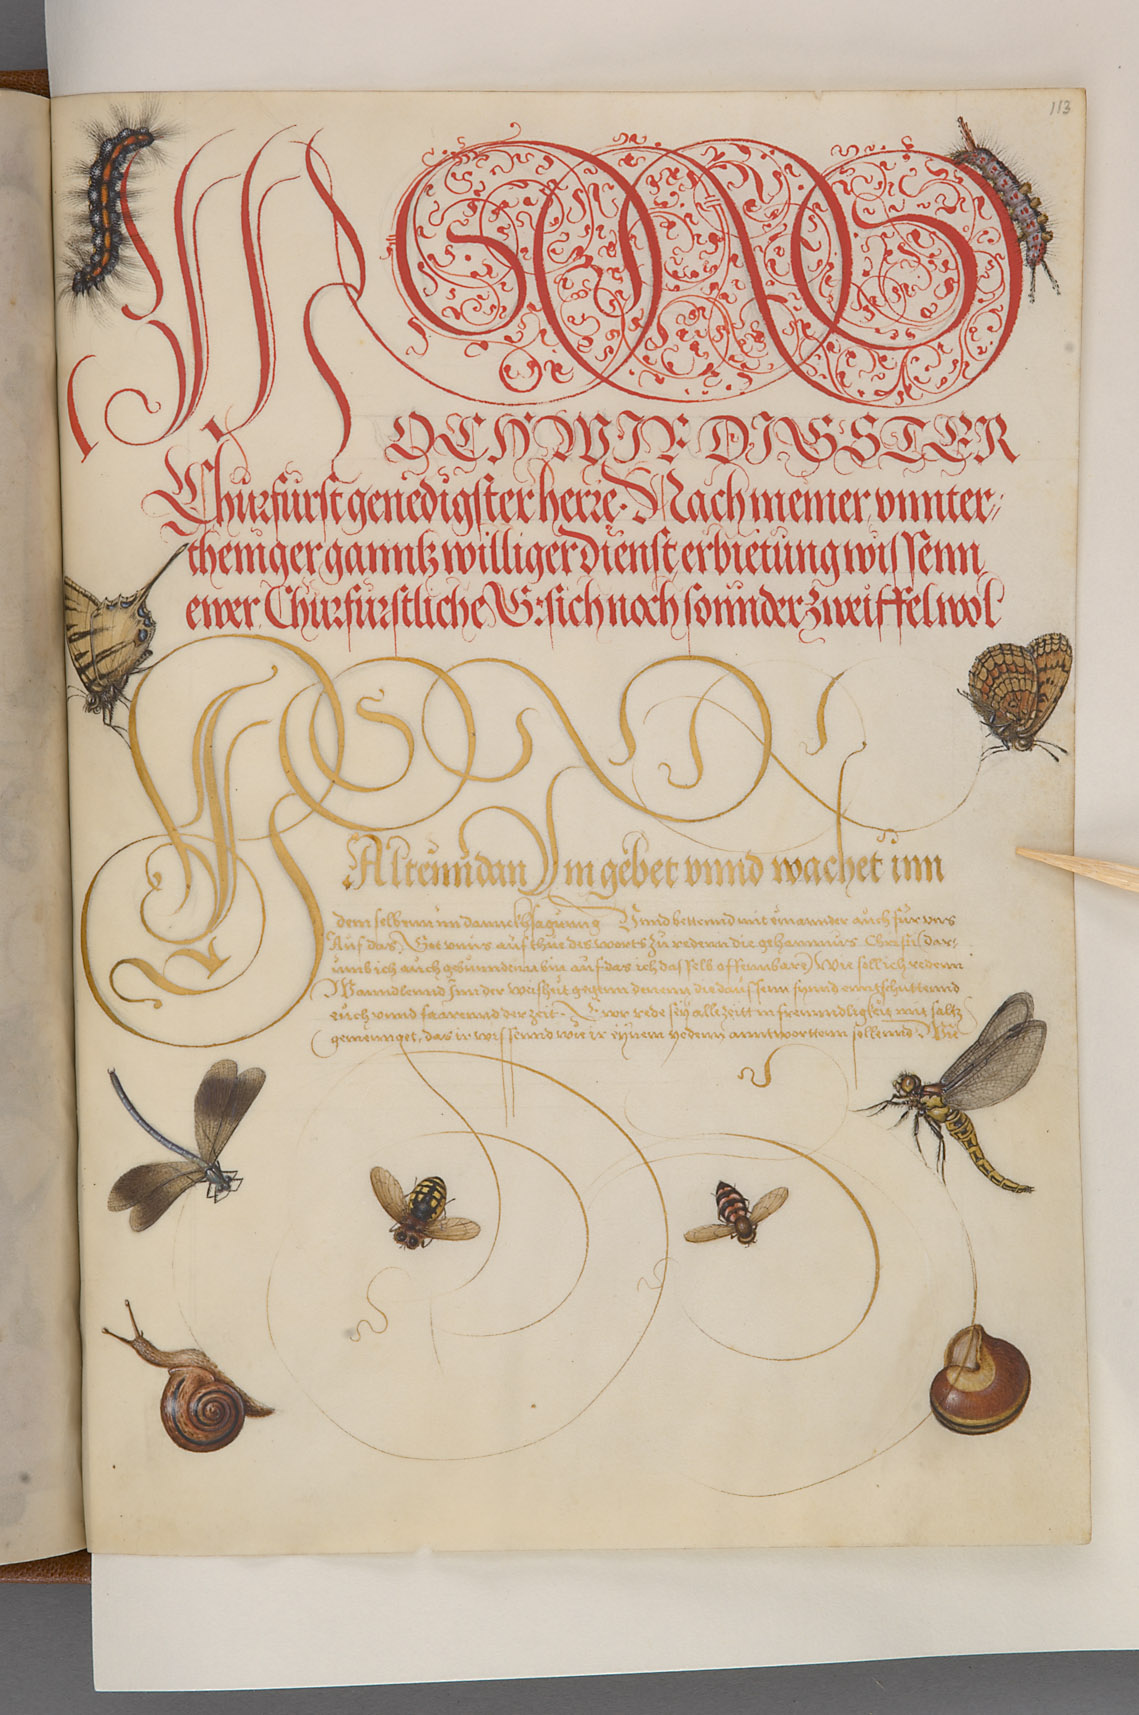 113
H
OCHWIRDIGSTER
Churfürst genedigster herre. Nach meiner, vnnter-
theniger ganntz williger dienst erbietung wissenn,
ewer Churfürstliche G: sich noch sonnder zweiffel wol
H
Altenn dan Im gebet vnnd wachet inn
dem selbenn im dannckhsagung Vnnd bettennd mit einannder auch für vns
Auf das, Got vnns auf thüe des worts zu redenn die gehaimnus Christi (dar-
umb ich auch gebunndenn bin auf das ich dasselb offennbare) Wie soll ich redenn
Wanndlennd Inn der weishait gegenn denenn die daussenn synnd
euch vnnd der zeit. Ewor rede sey alle zeitt in freunndligkeit mit saltz
gemennget, das ir wissennd wie ir eynem yedenn anntworttenn sollennd. Wie